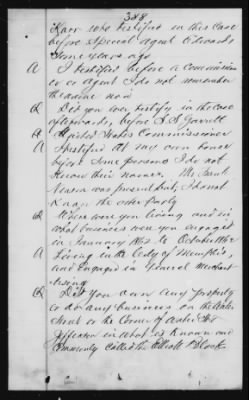 348
Karr who testified in this case
before special agent Edwards
some years ago
A I testified before a Commissioner
or agent I do not remember
the name now
Q Did you ever testify in this case
afterwards, before S. S. Garrett
A United States Commissioner
A I testified at my own house
before some persons I do not
know their names. Mr Frank
was present but, I do not
know the other party
Q Where were you living and in
what business were you engaged
in January 1862 to October 1862
A Living in the City of Memphis,
and Engaged in General Merchant
-dising
Q Did you own any property
or do any business on the
Street or the Corner of and
Jefferson in what is Known and
Commonly Called the Elliott Block